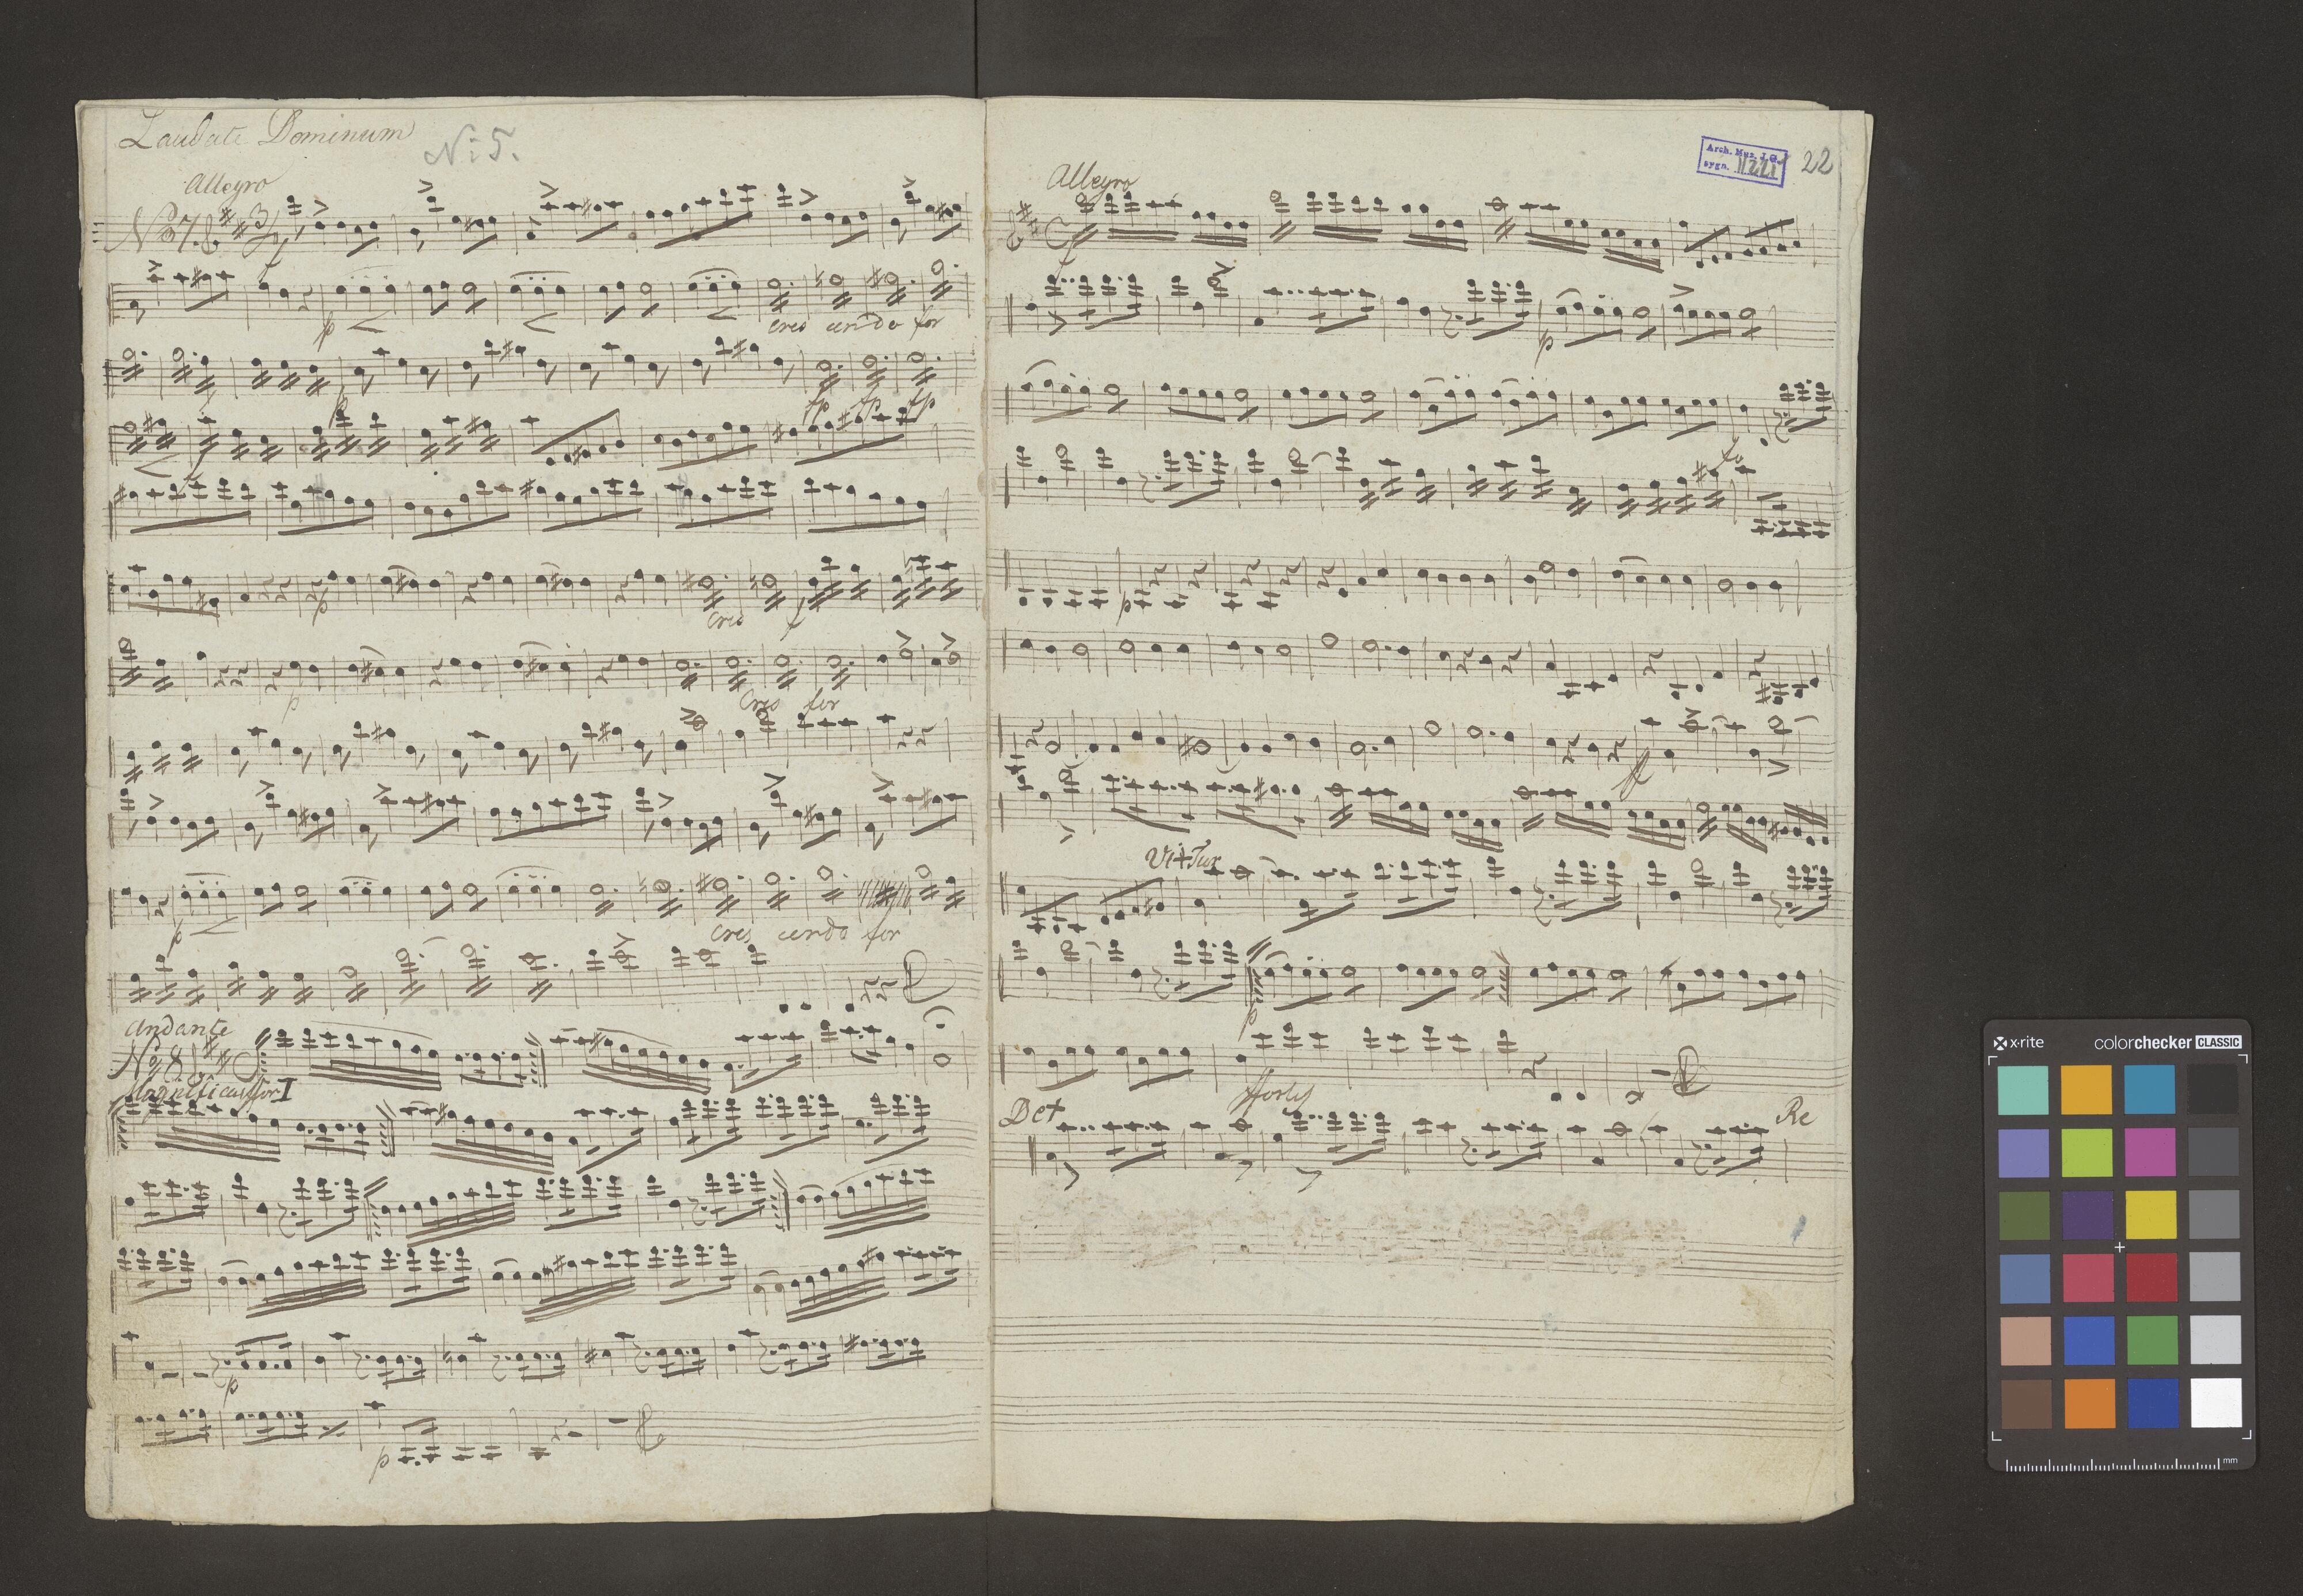 Laudate Dominum
N: 5.
Allegro
No 7. 3/4 f
p
cres cendo for
f p fp fp fp
f
p cres f
p Cres for
p cres cendo for
Andante
No 8
Magnificat
for I
p
p
Arch. Muz. J. G.
sygn. 22
Allegro
C f
p
fo
p
ff
Vi+Tux
p
fforty
Det Re
x-rite colorchecker CLASSIC
mm